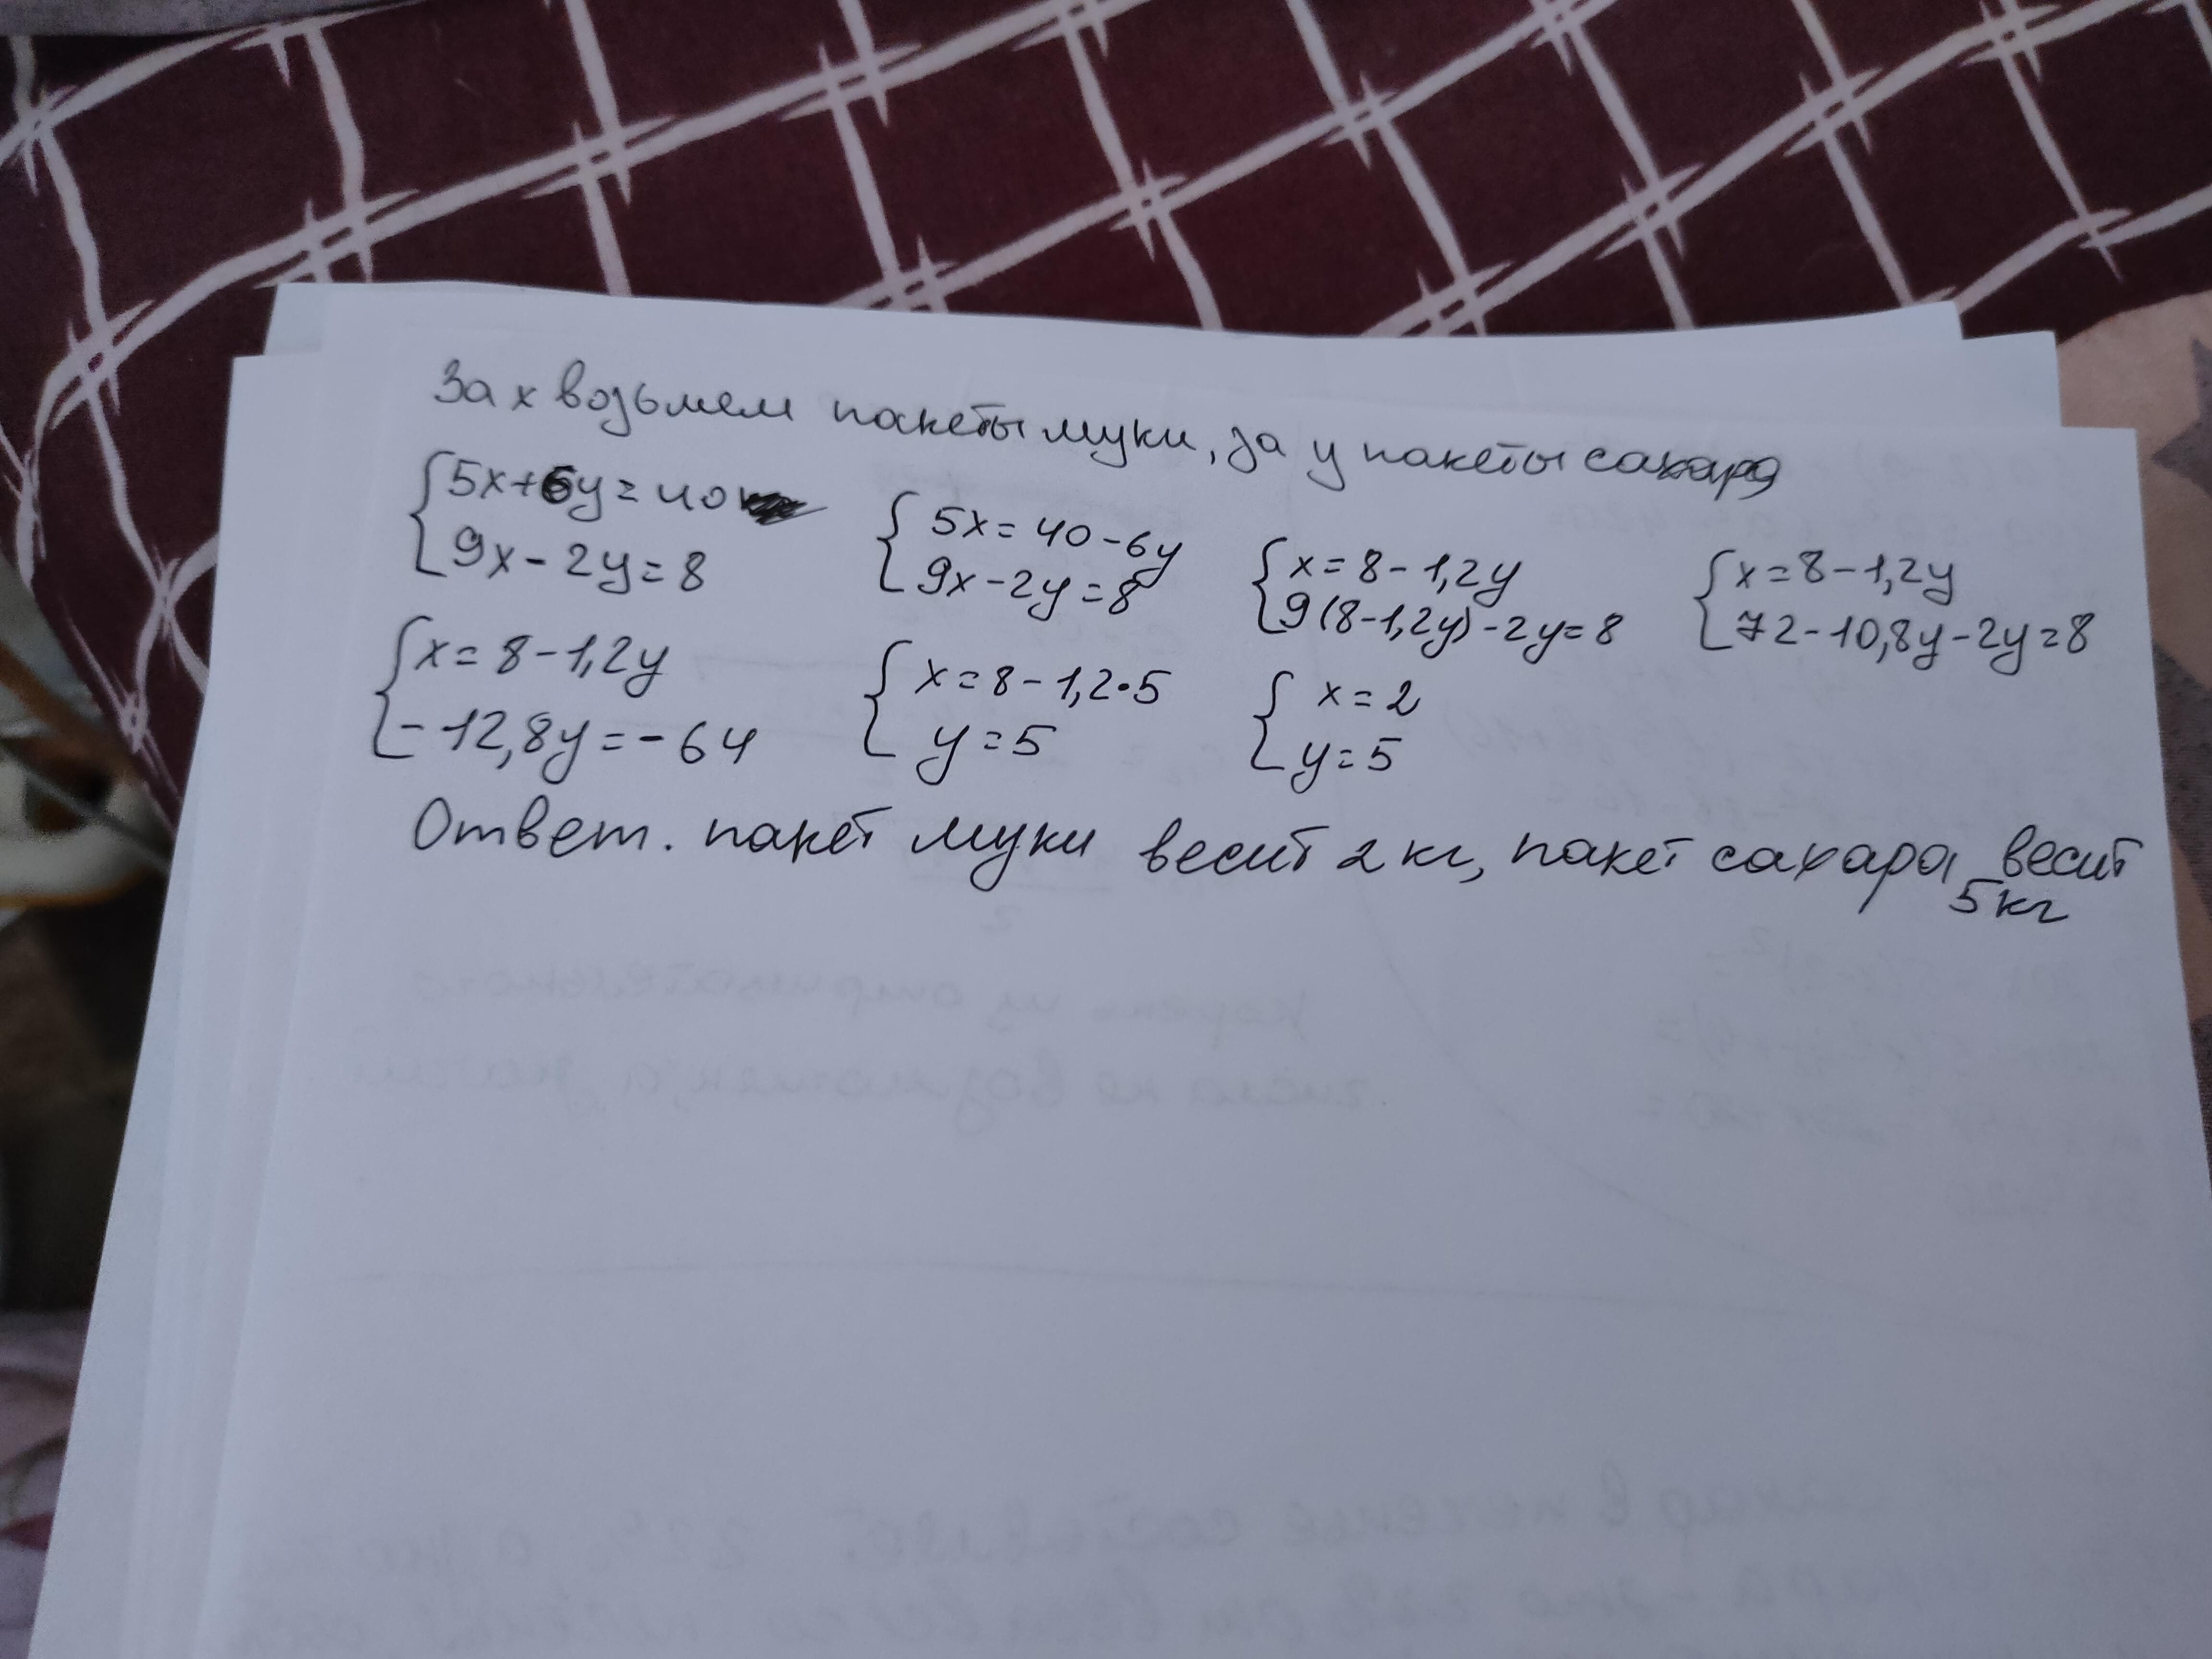 За х возьмем пакеты муки, за у пакеты сахара
5х+6у=40
9х-2у=8
5х=40-6у
9х-2у=8
х=8-1,2у
9(8-1,2у)-2у=8
х=8-1,2у
72-10,8у-2у=8
х=8-1,2у
-12,8у=-64
х=8-1,2•5
у=5
х=2
у=5
Ответ. пакет муки весит 2 кг, пакет сахара весит
5кг